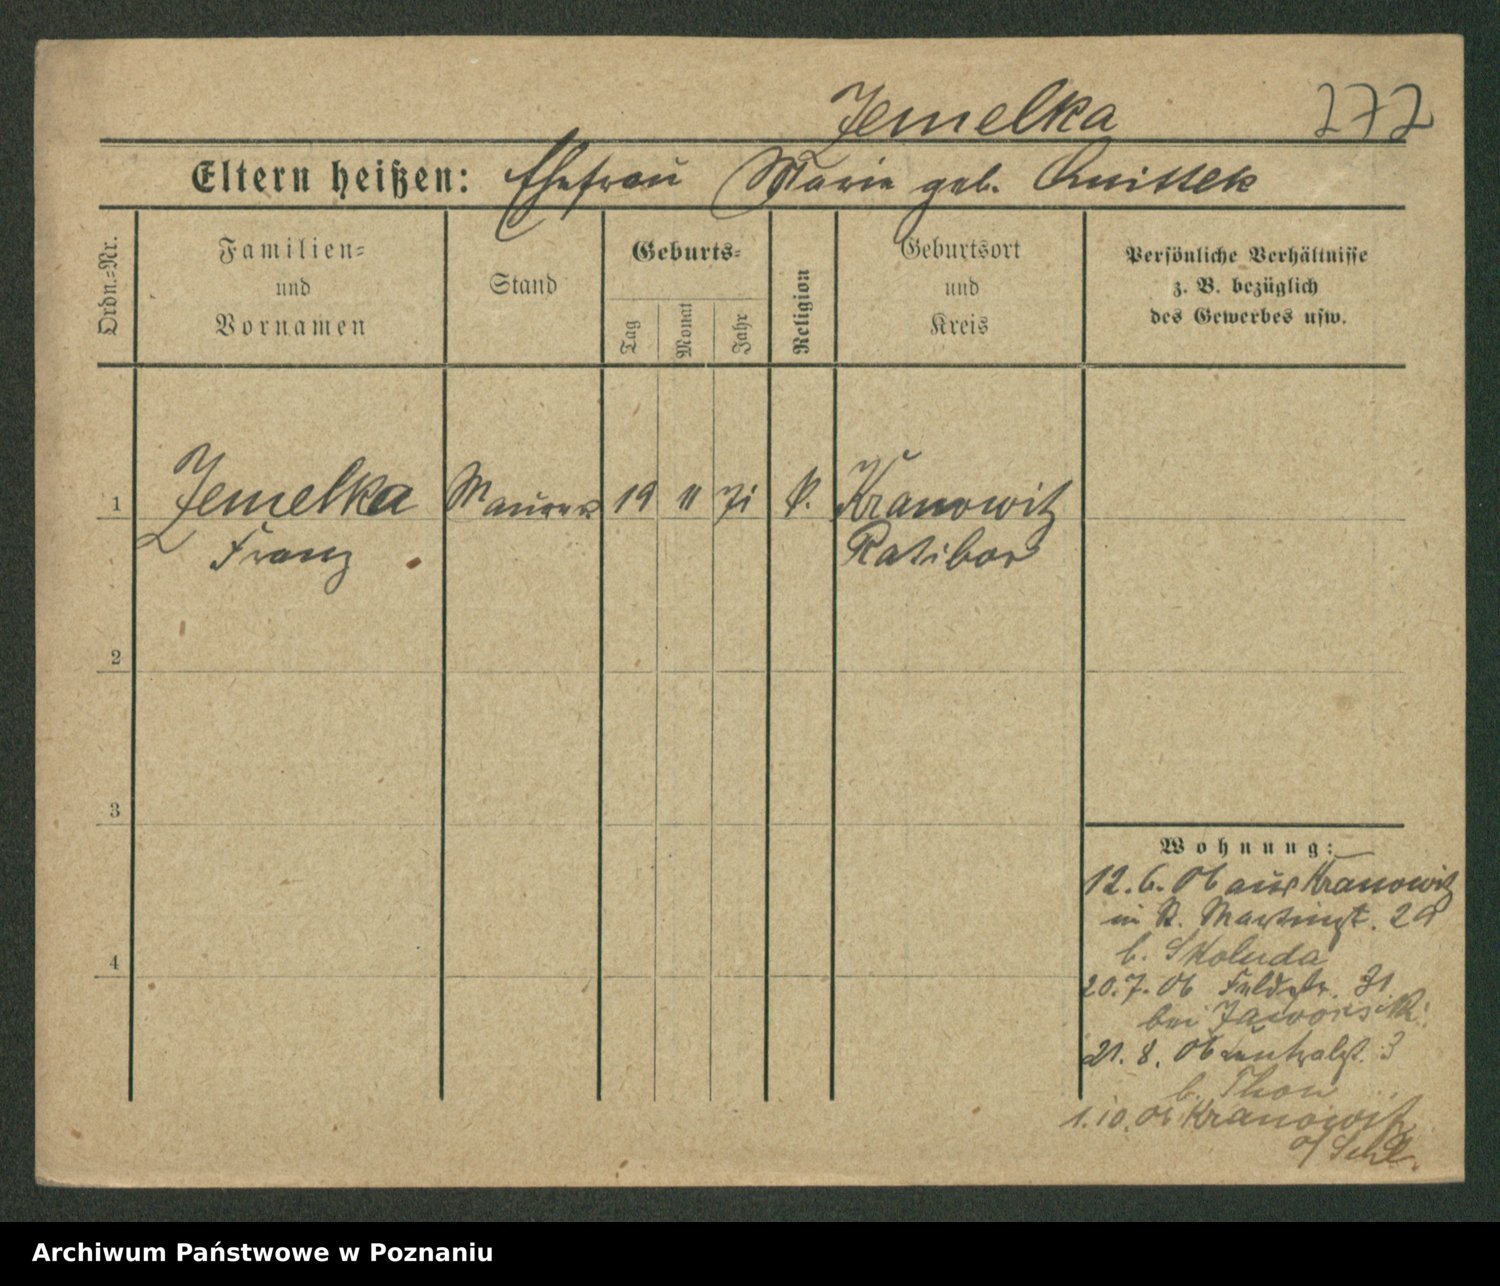 Jemelka
272
Eltern heißen: Ehefrau Marie geb.
Ordn.-Nr.
Familien-
und
Vornamen
Stand
Geburts-
Tag
Monat
Jahr
Religion
Geburtsort
und
Kreis
Persönliche Verhältnisse
z. B. bezüglich
des Gewerbes usw.
1 Jemelka Maurer 19 11 71 k. Kranowitz
Franz Ratibor
2
3
4
Wohnung:
12.6.06 aus Kranowitz
in St. Martinst. 29
b. Skoluda
20.7.06 Feldstr. 31
bei Jaworski
21.8.06 3
b. Thon
1.10.06 Kranowitz
Archiwum Państwowe w Poznaniu